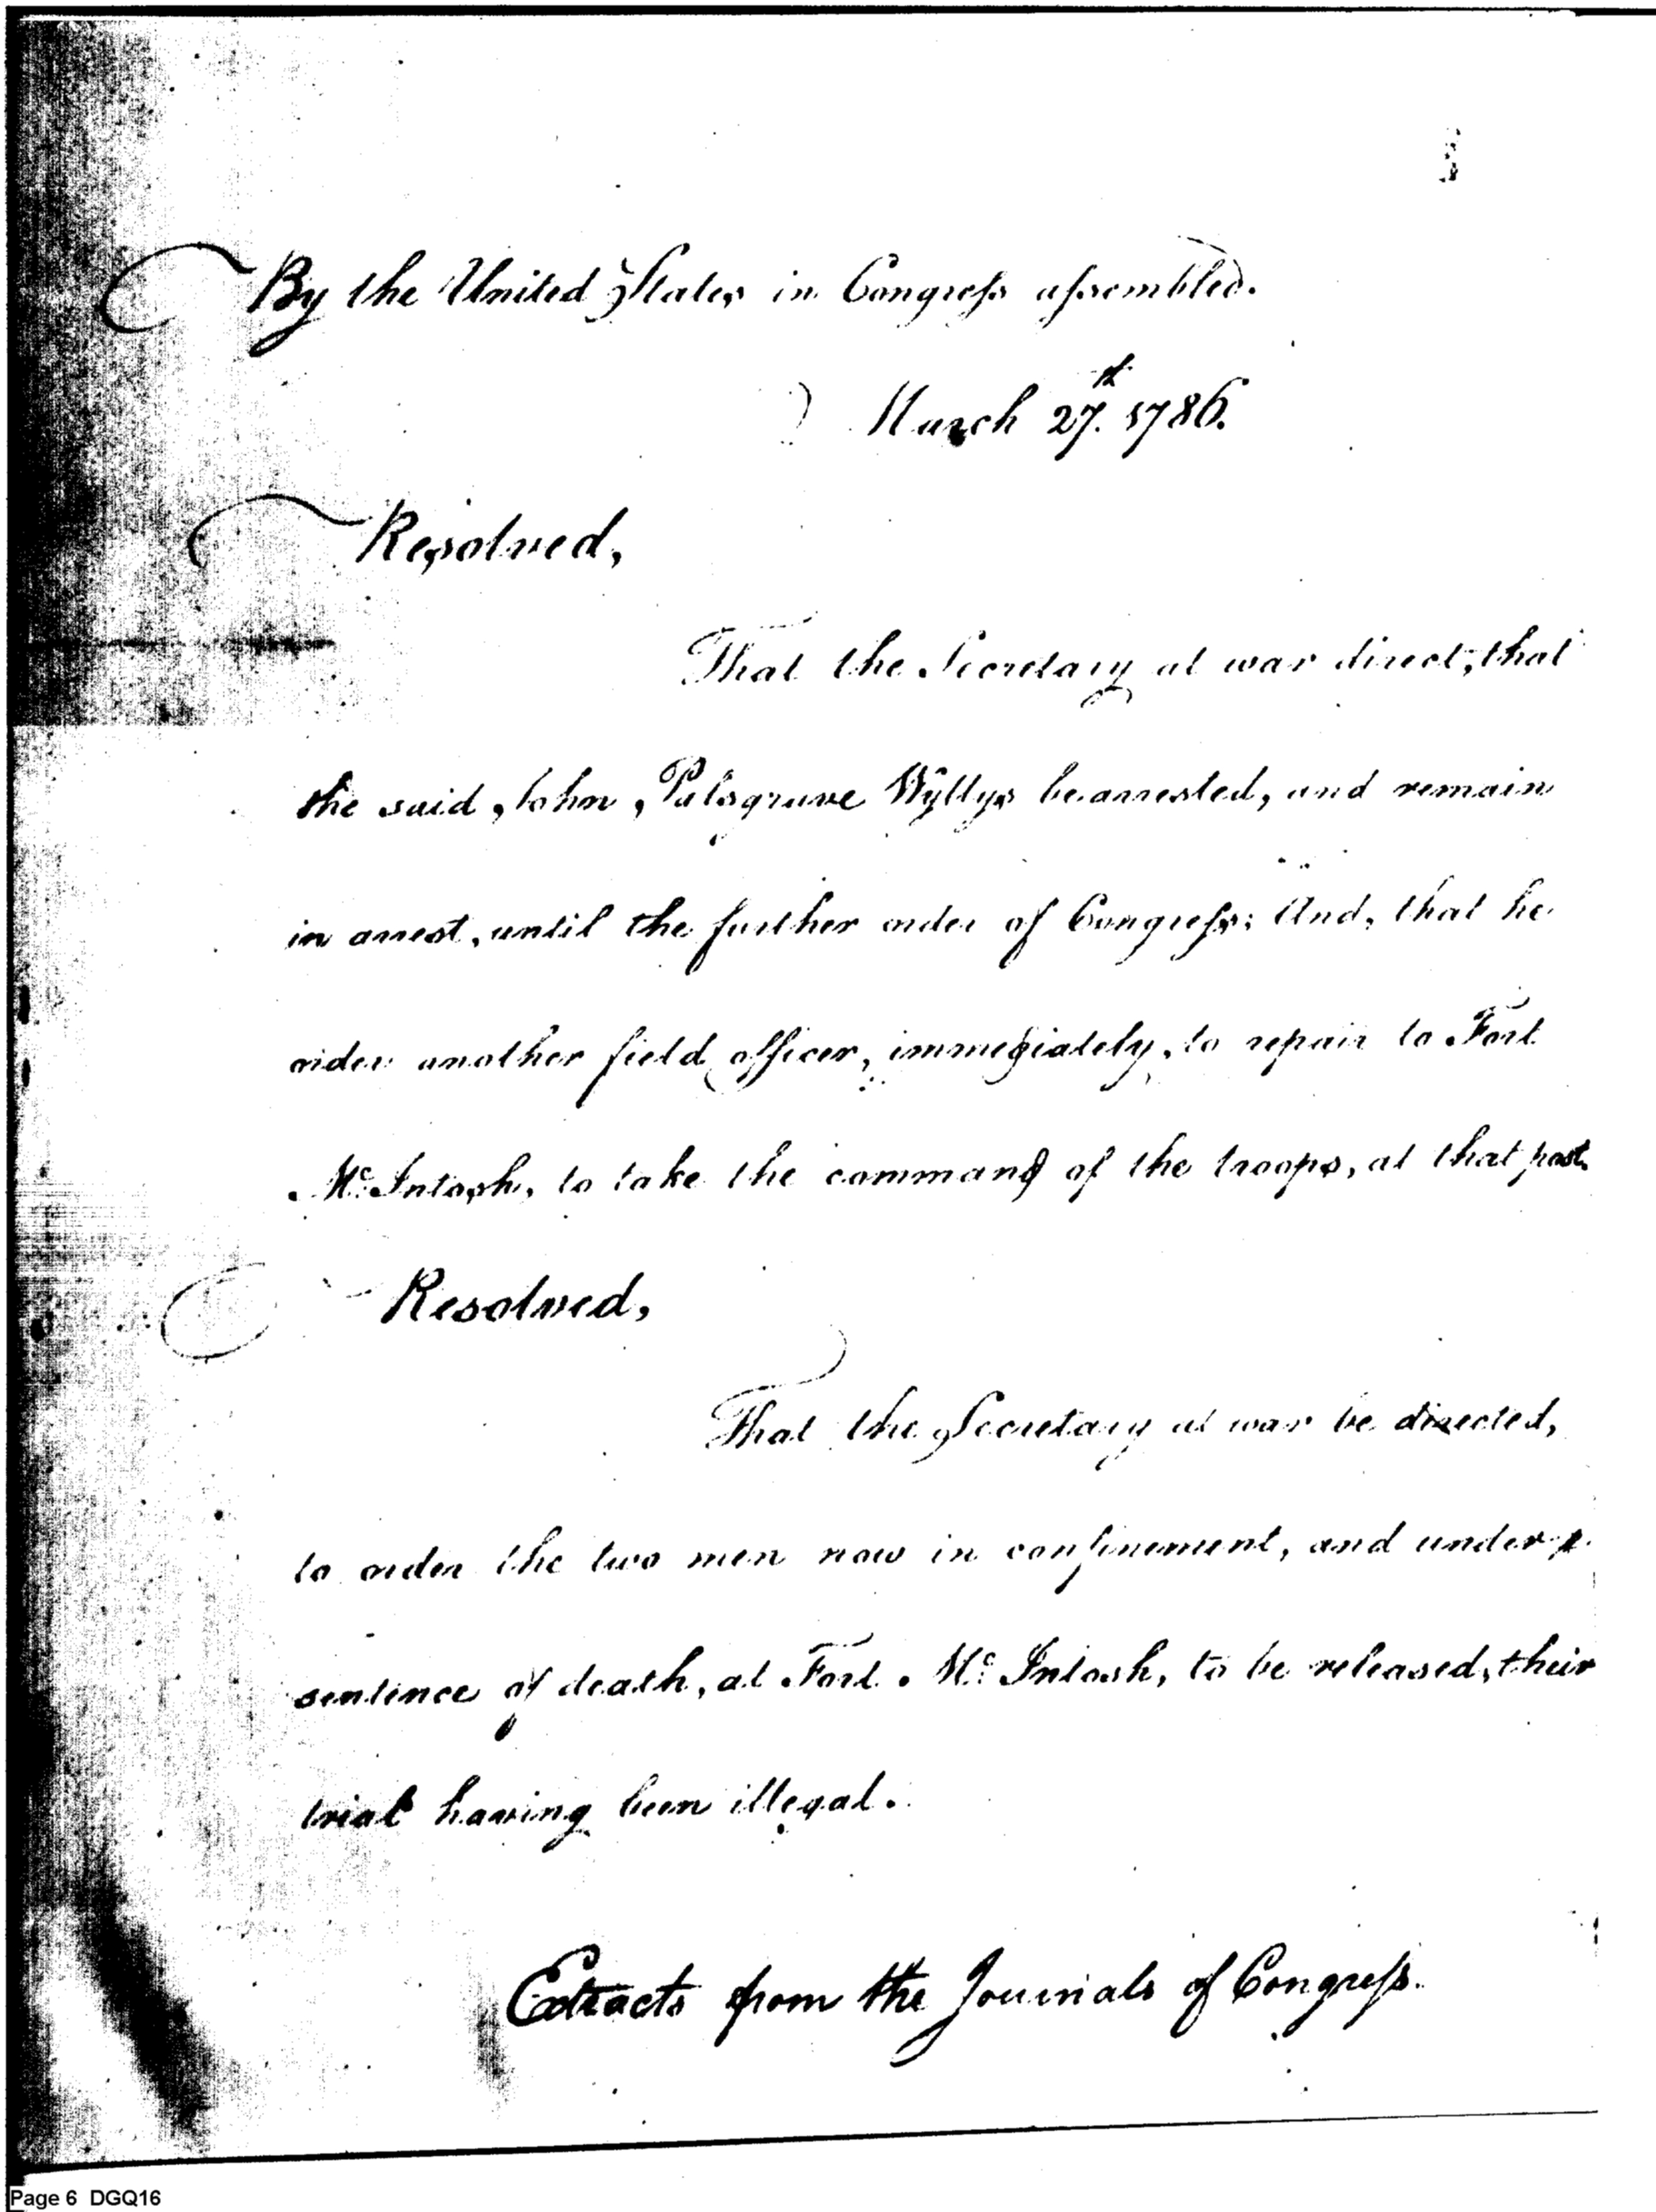 By the United States in Congress assembled.
March 27th. 1786.
Resolved,
That the Secretary at war direct, that
the said, John, Palsgrave Wyllys be arrested, and remain
in arrest, until the further order of Congress; And, that he
order another field officer, immediately, to repair to Fort
McIntosh, to take the command of the troops, at that post.
Resolved,
That the Secretary at war be directed,
to order the two men now in confinement, and under
sentence of death, at Fort McIntosh, to be released, their
trial having been illegal.
Extracts from the Journals of Congress.
Page 6 DGQ16